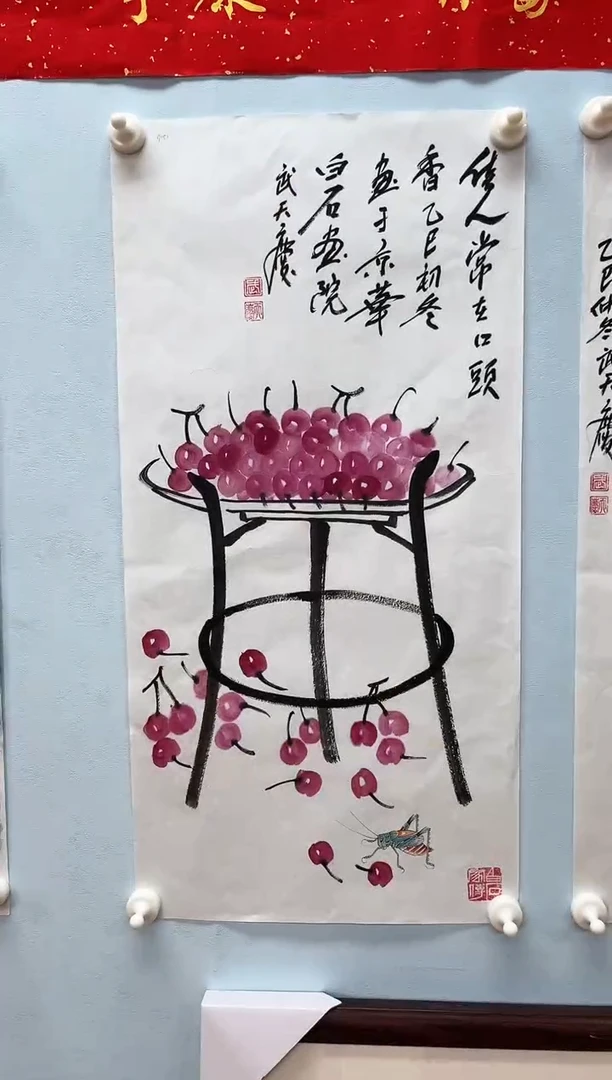 佳人常在口頭
香乙巳初冬
畫于京華
白石畫院
武天慶
乙巳仲冬武天慶